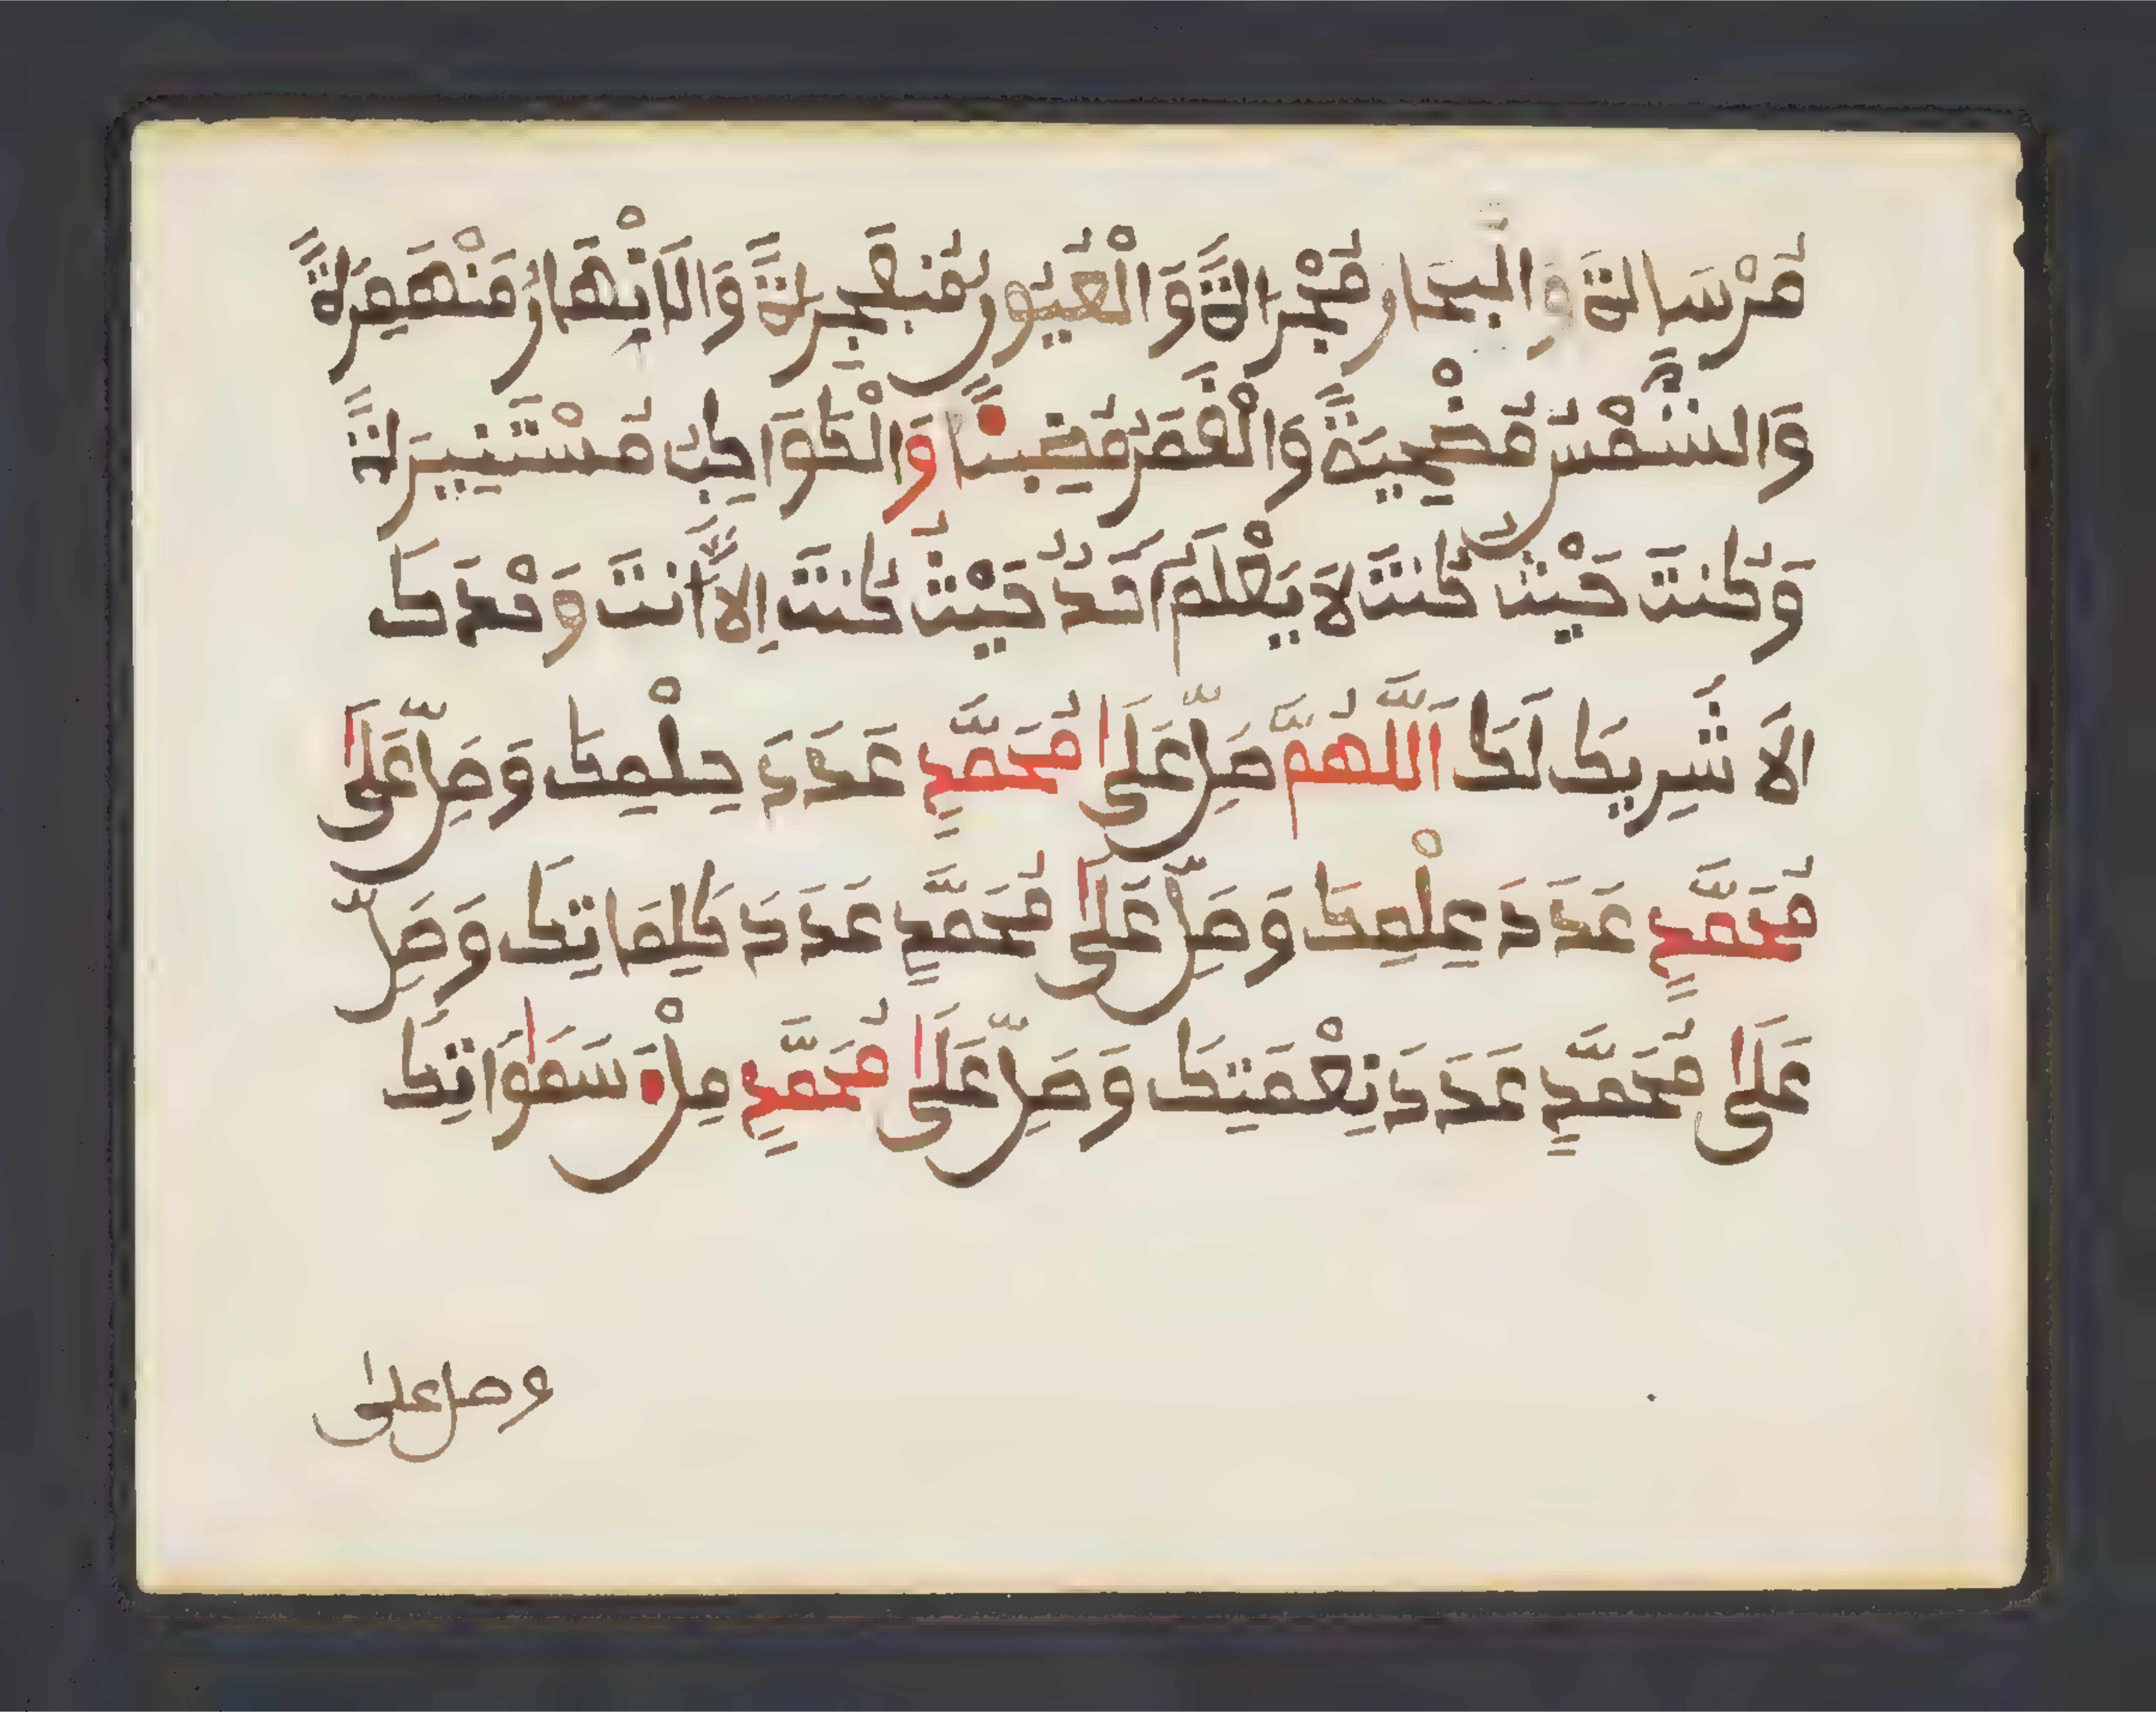 مُرْسَاةً وَالْبِحَارُ مُجْرَاةً وَالْعُيُونُ مُنْفَجِرَةً وَالْأَنْهَارُ مُنْهَمِرَةً
وَالشَّمْسُ مُضْحِيَةً وَالْقَمَرُ مُضِيئًا وَالْكَوَاكِبُ مُسْتَنِيرَةً
وَكُنتَ حَيْثُ كُنتَ لَا يَعْلَمُ أَحَدٌ حَيْثُ كُنتَ إِلَّا أَنتَ وَحْدَكَ
لَا شَرِيكَ لَكَ اَللَّهُمَّ صَلِّ عَلَى مُحَمَّدٍ عَدَدَ حِلْمِكَ وَصَلِّ عَلَى
مُحَمَّدٍ عَدَدَ عِلْمِكَ وَصَلِّ عَلَى مُحَمَّدٍ عَدَدَ كَلِمَاتِكَ وَصَلِّ
عَلَى مُحَمَّدٍ عَدَدَ نِعْمَتِكَ وَصَلِّ عَلَى مُحَمَّدٍ مِلْءَ سَمَوَاتِكَ
وصل على